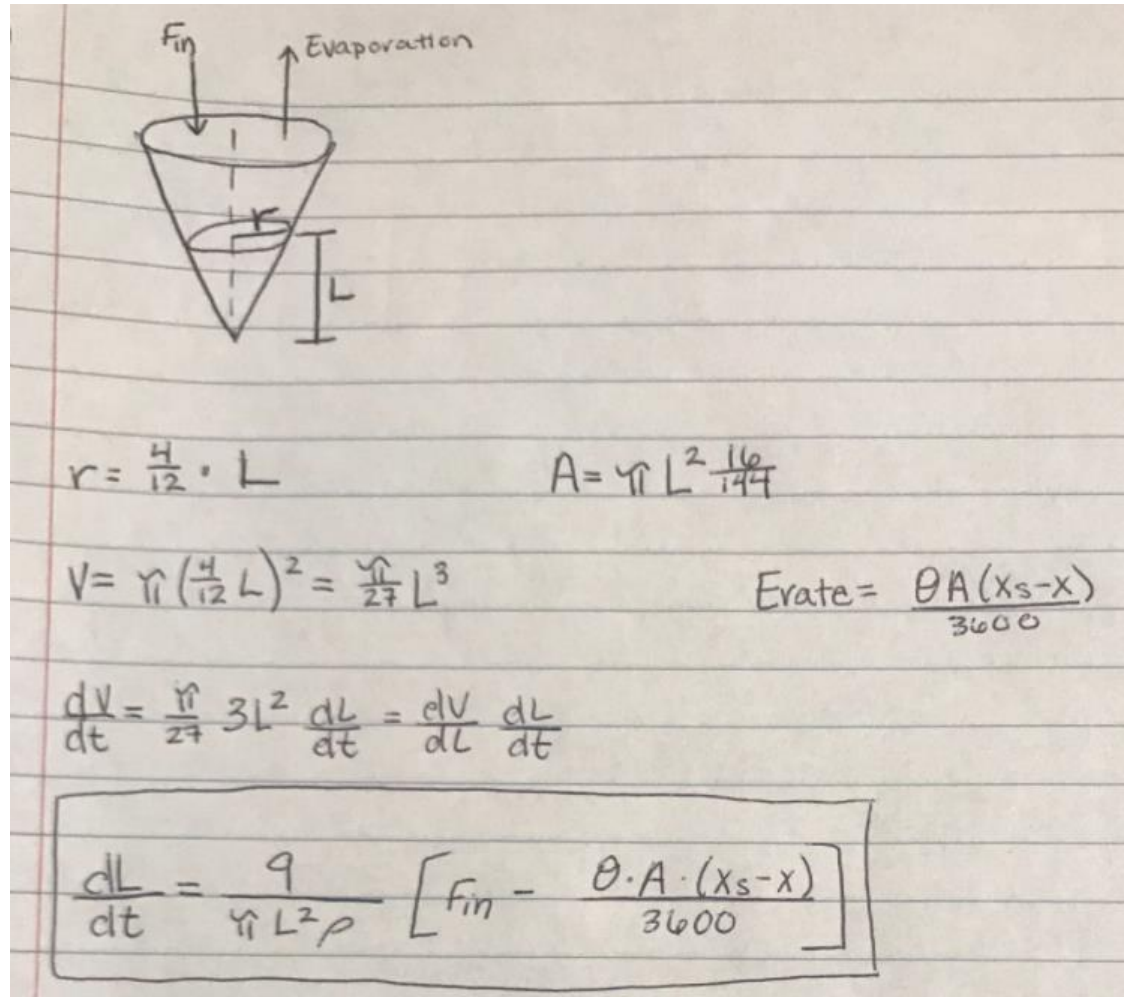 Fin
Evaporation
r
L
r = 4/12 · L
A = π L² 16/144
V = π (4/12 L)² = π/27 L³
Erate = θA(Xs-X)/3600
dV/dt = π/27 3L² dL/dt = dV/dL dL/dt
dL/dt = 9/(πL²ρ) [Fin - θ·A·(Xs-X)/3600]